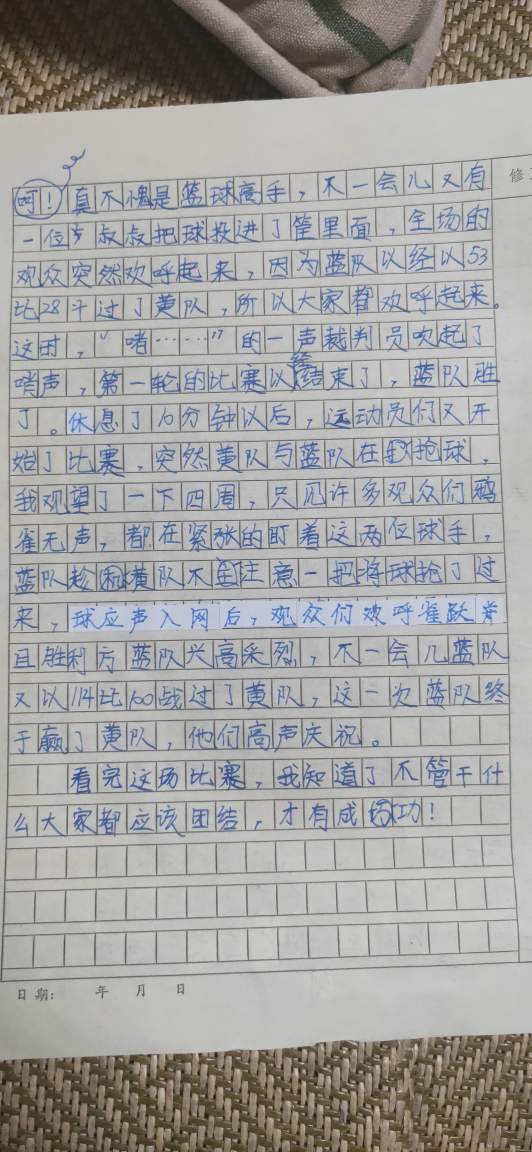 修
呵！真不愧是篮球高手，不一会儿又有
一位叔叔把球投进了筐里面，全场的
观众突然欢呼起来，因为蓝队以经以53
比28斗过了黄队，所以大家都欢呼起来。
这时，“嘟……”的一声裁判员吹起了
哨声，第一轮的比赛以经结束了，蓝队胜
了。休息了10分钟以后，运动员们又开
始了比赛，突然黄队与蓝队在抢球，
我观望了一下四周，只见许多观众们鸦
雀无声，都在紧张的盯着这两位球手，
蓝队趁黄队不注意一把将球抢了过
来，球应声入网后，观众们欢呼雀跃并
且胜利方蓝队兴高采烈，不一会儿蓝队
又以114比100战过了黄队，这一次蓝队终
于赢了黄队，他们高声庆祝。
看完这场比赛，我知道了不管干什
么大家都应该团结，才有成功！
日期： 年 月 日